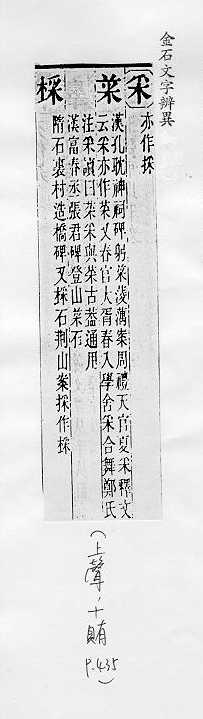 金石文字辨異
(采)亦作採
菜
漢孔耽神祠碑躬菜淩藕案周禮天官夏采釋文
云采亦作菜又春官大胥春入學舍采合舞鄭氏
注采讀曰菜采與菜古葢通用
漢富春丞張君碑登山菜石
採
隋石裏村造橋碑又採石荆山案採作採
(上聲、十賄
P.435)